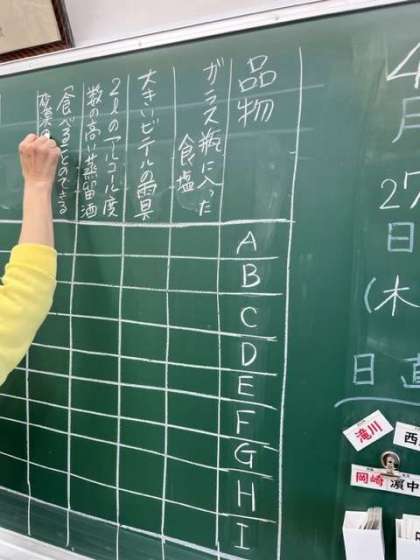 4月
27日
(木)
日直
滝川
西
岡崎
濵中
品物
ガラス瓶に入った
食塩
大きいビニールの雨具
2ℓのアルコール度
数の高い蒸留酒
「食べることのできる
A
B
C
D
E
F
G
H
I